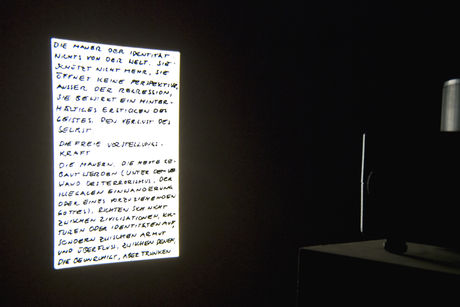 DIE MAUER DER IDENTITÄT
NICHTS VON DER WELT. SIE
SCHÜTZT NICHT MEHR, SIE
ÖFFNET KEINE PERSPEKTIVE
AUSSER DER REGRESSION,
SIE BEWIRKT EIN HINTER-
HÄLTIGES ERSTICKEN DES
GEISTES. DEN VERLUST DES
SELBST
DIE FREIE VORSTELLUNGS-
KRAFT
DIE MAUERN, DIE HEUTE GE-
BAUT WERDEN (UNTER DEM VOR-
WAND DES TERRORISMUS, DER
ILLEGALEN EINWANDERUNG
ODER EINES VORZUZIEHENDEN
GOTTES), RICHTEN SICH NICHT
ZWISCHEN ZIVILISATIONEN, KUL-
TUREN ODER IDENTITÄTEN AUF,
SONDERN ZWISCHEN ARMUT
UND ÜBERFLUSS, ZWISCHEN DENEN,
DIE BEUNRUHIGT, ABER TRUNKEN